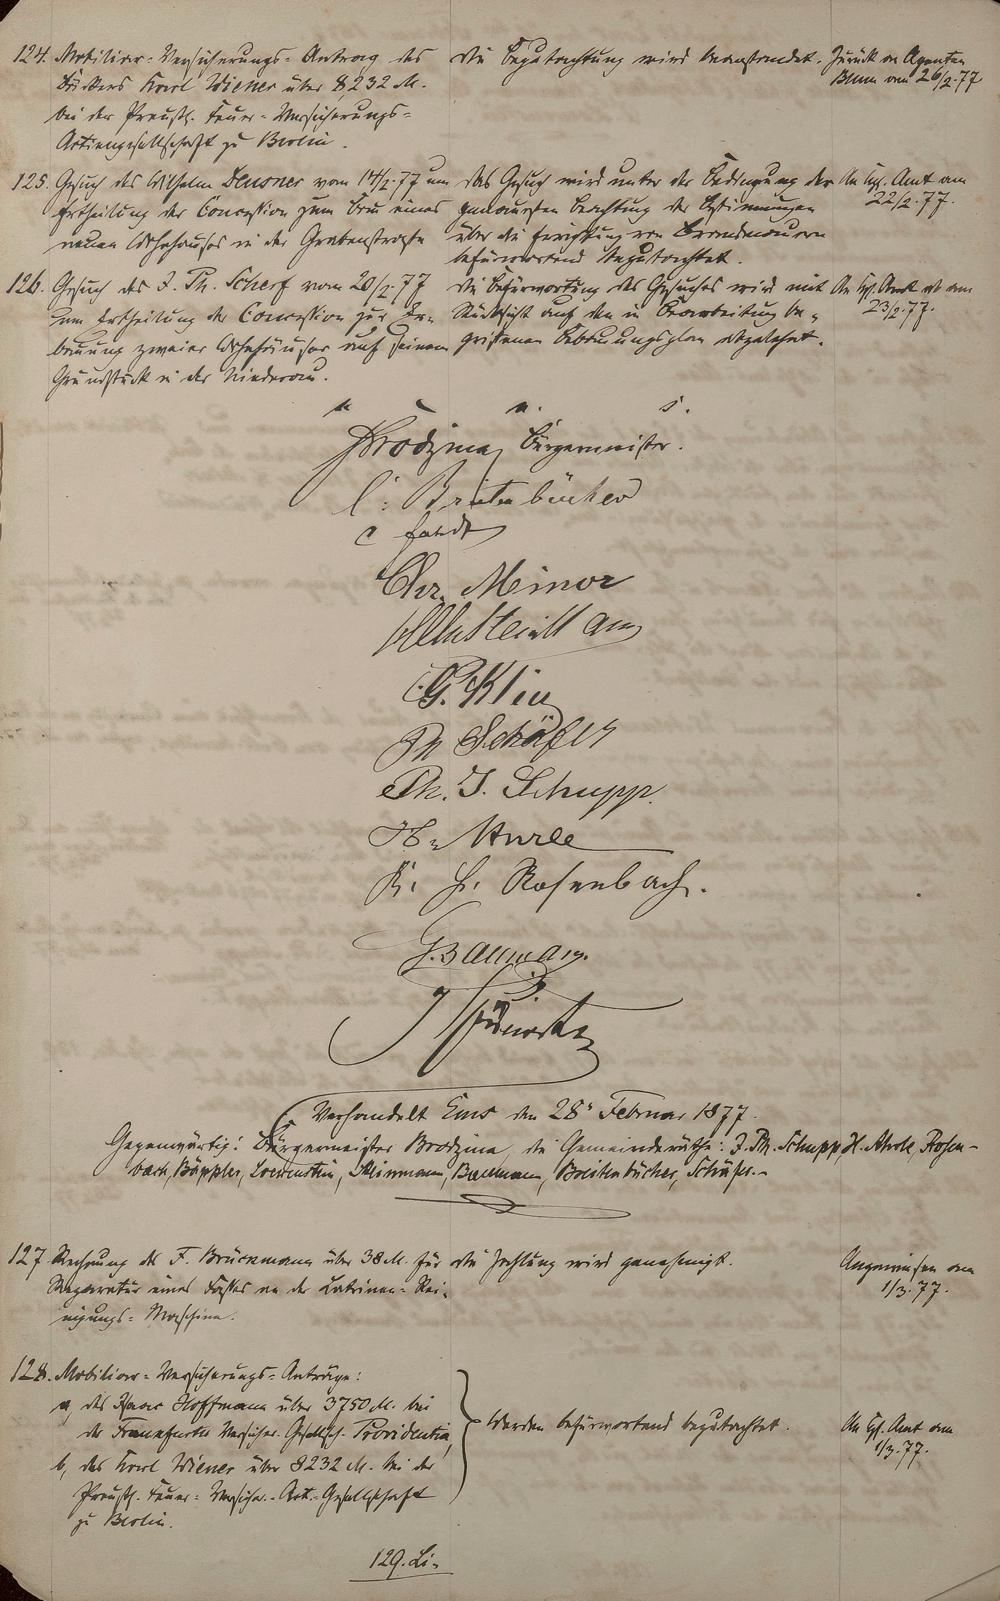 124. Mobiliar-Versicherungs-Antrag des
Bäckers Karl Wiener über 8232 M.
bei der Preuß. Feuer-Versicherungs-
Actiengesellschaft zu Berlin.
Die Begutachtung wird beanstandet.
Zurück an Agenten
Blum am 26/2.77
125. Gesuch des Wilhelm Deusner vom 14/2.77 um
Ertheilung der Concession zum Bau eines
neuen Wohnhauses in der Grabenstraße
Das Gesuch wird unter der Bedingung der
genauesten Beachtung der Bestimmungen
über die Errichtung von Brandmauern
befürwortend begutachtet.
An Kgl. Amt am
22/2.77.
126. Gesuch des J. Ph. Scherf vom 20/2.77
um Ertheilung der Concession zur Er-
bauung zweier Wohnhäuser auf seinem
Grundstück in der Niederau.
Die Befürwortung des Gesuches wird mit
Rücksicht auf den in Bearbeitung be-
griffenen Bebauungsplan abgelehnt.
An Kgl. Amt am
23/2.77.
Brodzina, Bürgermeister.
Breitenbücher
Chr. Minor
G. Klein
Ph Schäfer
Ph. J. Schupp
H. Ahrle
K. H. Rosenbach.
G. Baumann.
Verhandelt Ems den 28. Februar 1877.
Gegenwärtig: Bürgermeister Brodzina, die Gemeinderäthe: J. Ph. Schupp, H. Ahrle, Rosen-
bach, Böppler, Loewenstein, Baumann, Breitenbücher, Schäfer.
127. Rechnung des F. Bruckmann über 38 M. für
Reparatur eines Fasses an der Latrinen-Rei-
nigungs-Maschine.
Die Zahlung wird genehmigt.
Angewiesen am
1/3.77.
128. Mobiliar-Versicherungs-Anträge:
a, des Isaac Hoffmann über 3750 M. bei
der Frankfurter Versicher. Gesellsch. Providentia,
b, des Karl Wiener über 8232 M. bei der
Preuß. Feuer-Versicher.-Act.-Gesellschaft
zu Berlin.
Werden befürwortend begutachtet.
An Kgl. Amt am
1/3.77.
129. Li-